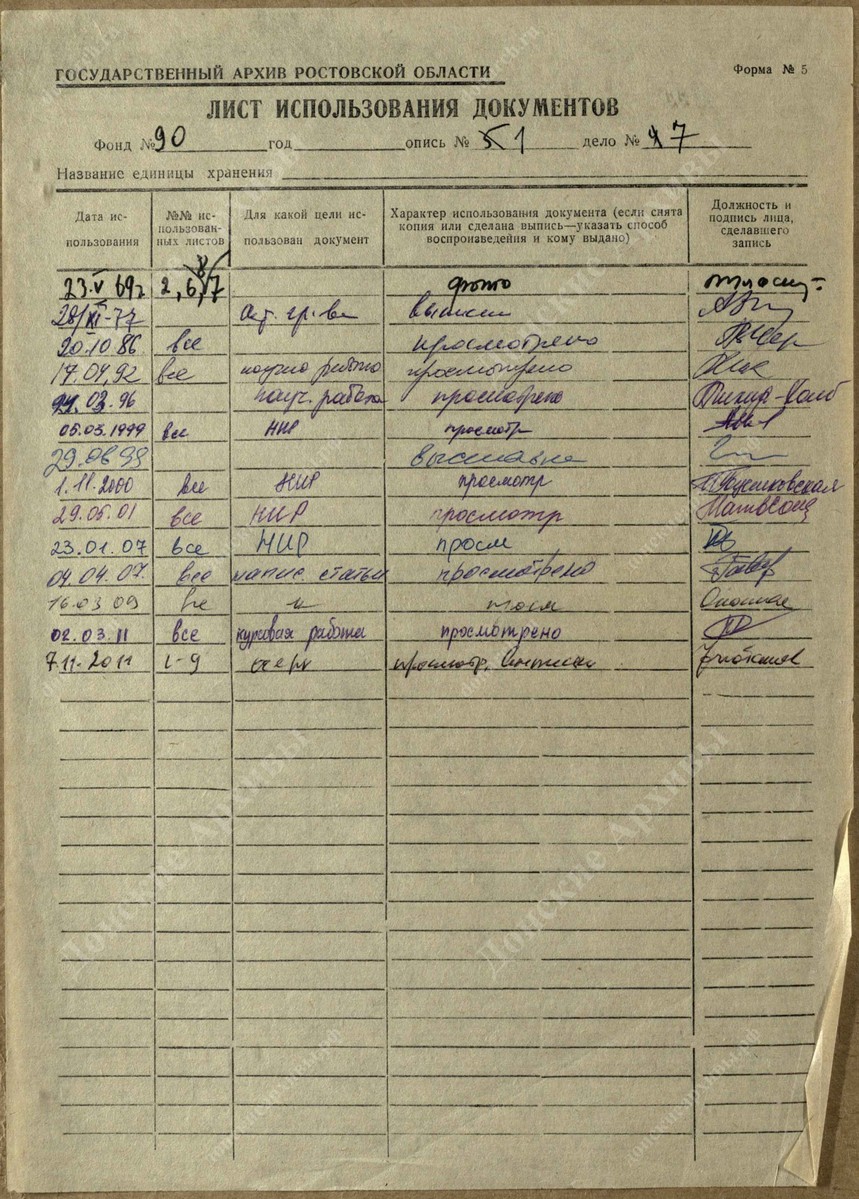 ГОСУДАРСТВЕННЫЙ АРХИВ РОСТОВСКОЙ ОБЛАСТИ
Форма № 5
ЛИСТ ИСПОЛЬЗОВАНИЯ ДОКУМЕНТОВ
Фонд № 90 год опись № 1 дело № 7
Название единицы хранения
Дата ис-
пользования
№№ ис-
пользован-
ных листов
Для какой цели ис-
пользован документ
Характер использования документа (если снята
копия или сделана выпись—указать способ
воспроизведения и кому выдано)
Должность и
подпись лица,
сделавшего
запись
23.V 69г 2, 6, 7 фото
28/XI-77 выписки
20.10 86. все просмотрено
17.04,92 все научно работа просмотрено
03. 96 науч. работа просмотрено
05.03.1999 все НИР просмотр
29.06 99 выставка
1.11.2000 все НИР просмотр
29.05.01 все НИР просмотр
23.01.07 все НИР просм
04.04.07. все напис. статьи просмотрено
16.03 09 все просм
02.03.11 все курсовая работа просмотрено
7.11-2011 1-9 очерк просмотр,
Донские Архивы
Донские Архивы
донскиеархивы.рф
донскиеархивы.рф